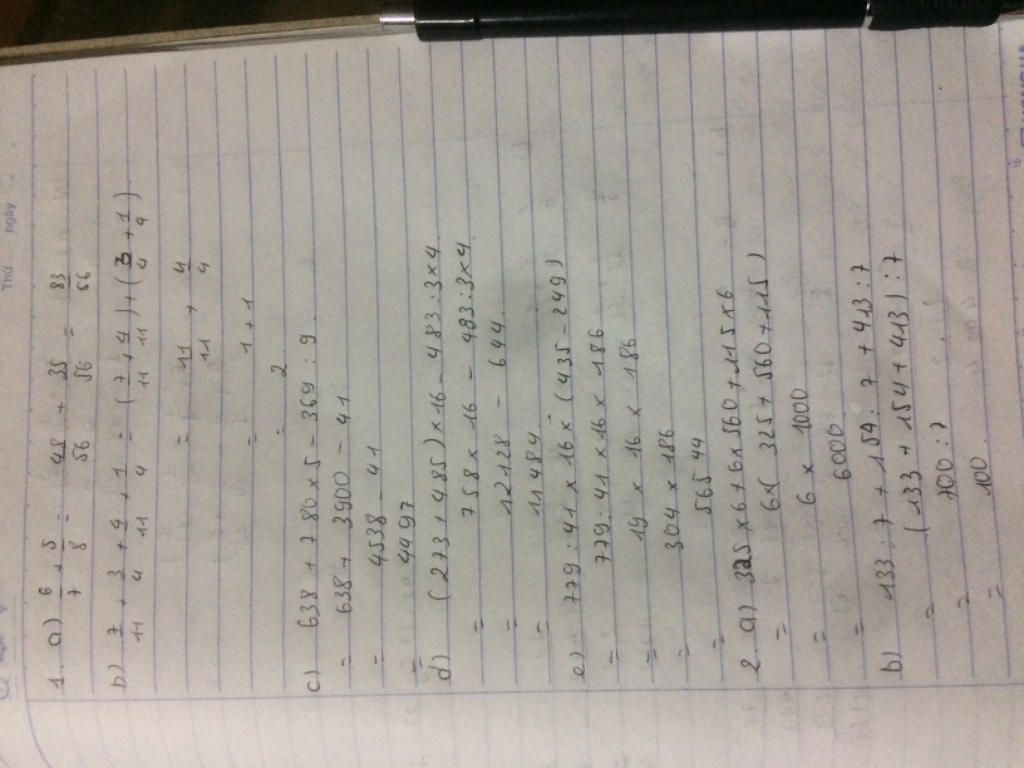 Thứ ngày
1. a) 6/7 + 5/8 = 48/56 + 35/56 = 83/56
b) 7/11 + 3/4 + 4/11 + 1/4 = (7/11 + 4/11) + (3/4 + 1/4)
= 11/11 + 4/4
= 1 + 1
= 2
c) 638 + 780 x 5 - 369 : 9
= 638 + 3900 - 41
= 4538 - 41
= 4497
d) (273 + 485) x 16 - 483 : 3 x 4
= 758 x 16 - 483 : 3 x 4
= 12128 - 644
= 11484
e) 779 : 41 x 16 x (435 - 249)
= 779 : 41 x 16 x 186
= 19 x 16 x 186
= 304 x 186
= 56544
2 a) 325 x 6 + 6 x 560 + 115 x 6
= 6 x (325 + 560 + 115)
= 6 x 1000
= 6000
b) 133 : 7 + 154 : 7 + 413 : 7
= (133 + 154 + 413) : 7
= 700 : 7
= 100